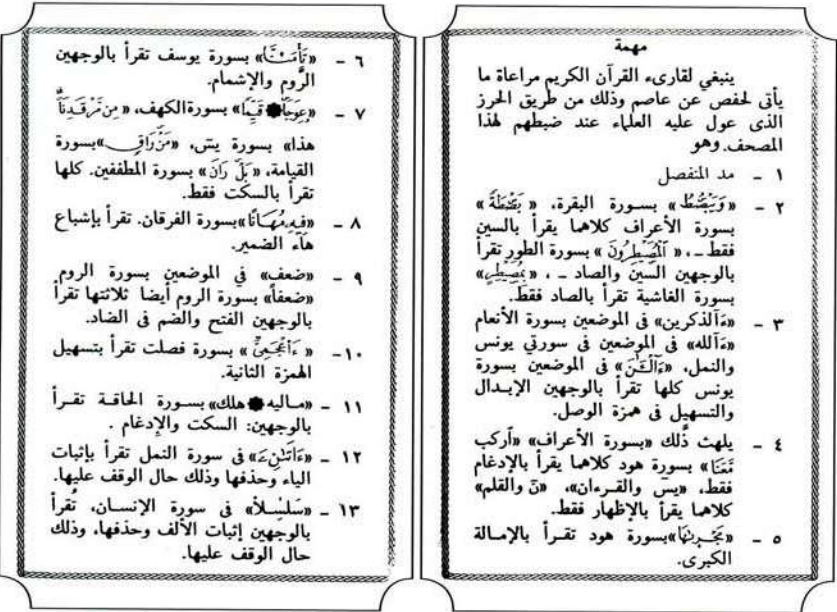 مهمة
ينبغي لقارىء القرآن الكريم مراعاة ما
يأتى لحفص عن عاصم وذلك من طريق الحرز
الذى عول عليه العلماء عند ضبطهم لهذا
المصحف. وهو
١ - مد المنفصل
٢ - «وَيَبْصُۜطُ» بسورة البقرة، «بَصْۜطَةً»
بسورة الأعراف كلاهما يقرأ بالسين
فقط ـ، «ٱلْمُصَۜيْطِرُونَ» بسورة الطور تقرأ
بالوجهين السين والصاد ـ، «بِمُصَيْطِرٍ»
بسورة الغاشية تقرأ بالصاد فقط.
٣ - «ءَآلذكرين» فى الموضعين بسورة الأنعام
«ءَآلله» فى الموضعين فى سورتي يونس
والنمل، «ءَآلْـَٰٔنَ» فى الموضعين بسورة
يونس كلها تقرأ بالوجهين الإبدال
والتسهيل فى همزة الوصل.
٤ - يلهث ذَّلك «بسورة الأعراف» «ٱركب
مَّعَنَا» بسورة هود كلاهما يقرأ بالإدغام
فقط، «يسٓ والقرءان»، «نٓ والقلم»
كلاهما يقرأ بالإظهار فقط.
٥ - «مَجْر۪ىٰهَا» بسورة هود تقرأ بالإمالة
الكبرى.
٦ - «تَأْمَ۫نَّا» بسورة يوسف تقرأ بالوجهين
الرَّوم والإشمام.
٧ - «عِوَجَاۜ قَيِّمًا» بسورة الكهف، «مِن مَّرْقَدِنَاۜ
هذا» بسورة يسٓ، «مَنْۜ رَاقٍ» بسورة
القيامة، «بَلْۜ رَانَ» بسورة المطففين. كلها
تقرأ بالسكت فقط.
٨ - «فِيهِۦ مُهَانًا» بسورة الفرقان. تقرأ بإشباع
هآء الضمير.
٩ - «ضعف» فى الموضعين بسورة الروم
«ضعفاً» بسورة الروم أيضا ثلاثتها تقرأ
بالوجهين الفتح والضم فى الضاد.
١٠ - «ءَا۬عْجَمِىٌّ» بسورة فصلت تقرأ بتسهيل
الهمزة الثانية.
١١ - «ماليه هلك» بسورة الحاقة تقرأ
بالوجهين: السكت والإدغام .
١٢ - «ءَاتَىٰنِۦَ» فى سورة النمل تقرأ بإثبات
الياء وحذفها وذلك حال الوقف عليها.
١٣ - «سَلَٰسِلَا۟» فى سورة الإنسان، تُقرأ
بالوجهين إثبات الألف وحذفها، وذلك
حال الوقف عليها.